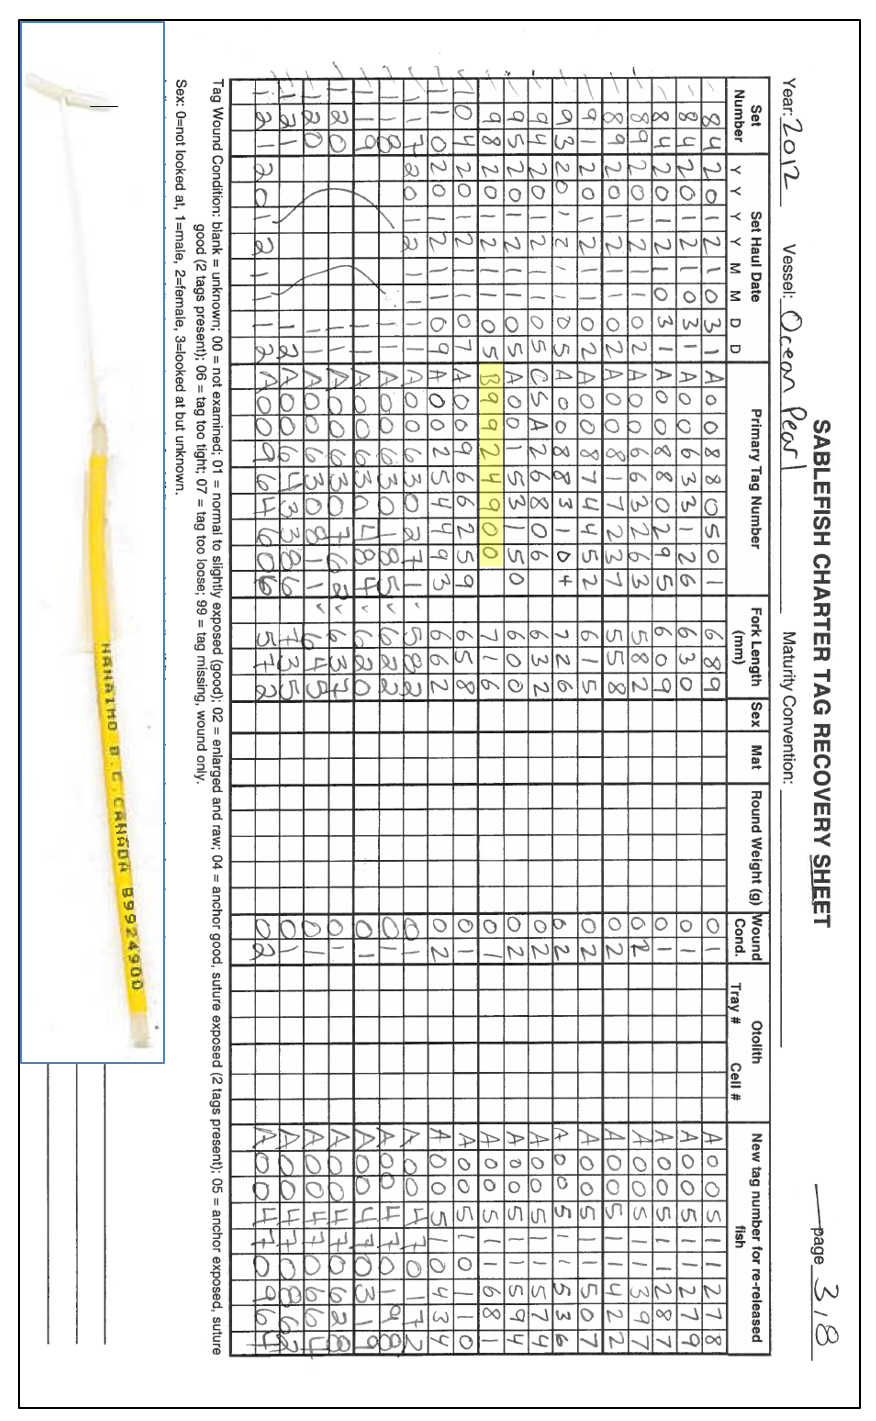 SABLEFISH CHARTER TAG RECOVERY SHEET
page 318
Year: 2012 Vessel: Ocean Pearl Maturity Convention:
Set Number Set Haul Date Primary Tag Number Fork Length (mm) Sex Mat Round Weight (g) Wound Cond. Otolith New tag number for re-released fish
Y Y Y Y M M D D Tray # Cell #
84 2012 10 31 A00880501 689 01 A00511278
84 2012 10 31 A00633126 630 01 A00511279
84 2012 10 31 A00880295 609 01 A00511287
89 2012 11 02 A00663263 582 02 A00511397
89 2012 11 02 A00817237 558 02 A00511422
91 2012 11 02 A00874452 615 02 A00511507
93 2012 11 05 A00883104 726 02 A00511536
94 2012 11 05 CSA26806 632 02 A00511574
95 2012 11 05 A00153150 600 02 A00511594
98 2012 11 05 B9924900 716 01 A00511681
104 2012 11 07 A00966259 658 01 A00510110
110 2012 11 09 A00254493 662 02 A00510434
117 2012 11 11 A00630271 582 01 A00470172
118 11 A00630185 622 01 A00470198
119 11 A00630484 620 01 A00470319
120 11 A00630762 637 01 A00470628
120 11 A00630811 645 01 A00470664
121 12 A00643386 735 01 A00470862
121 2012 11 12 A00964606 572 02 A00470964
Tag Wound Condition: blank = unknown; 00 = not examined; 01 = normal to slightly exposed (good); 02 = enlarged and raw; 04 = anchor good, suture exposed (2 tags present); 05 = anchor exposed, suture
good (2 tags present); 06 = tag too tight; 07 = tag too loose; 99 = tag missing, wound only.
Sex: 0=not looked at, 1=male, 2=female, 3=looked at but unknown.
NANAIMO B.C. CANADA B9924900